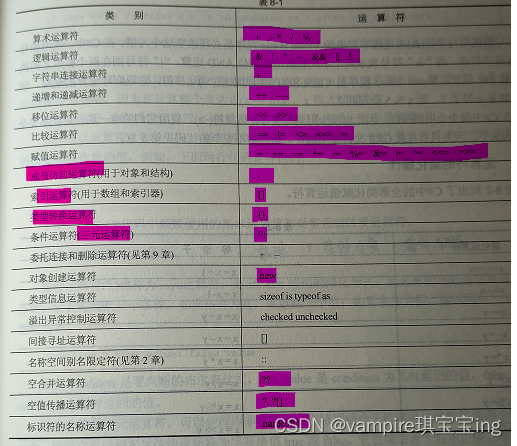 表 8-1
类 别 运 算 符
算术运算符 + - * / %
逻辑运算符 & | ^ ~ && || !
字符串连接运算符 +
递增和递减运算符 ++ --
移位运算符 << >>
比较运算符 == != <> <= >=
赋值运算符 = += -= *= /= %= &= |= ^= <<= >>=
成员访问运算符(用于对象和结构) .
索引运算符(用于数组和索引器) []
类型转换运算符 ()
条件运算符(三元运算符) ?:
委托连接和删除运算符(见第 9 章) + -
对象创建运算符 new
类型信息运算符 sizeof is typeof as
溢出异常控制运算符 checked unchecked
间接寻址运算符 []
名称空间别名限定符(见第 2 章) ::
空合并运算符 ??
空值传播运算符 ?. ?[]
标识符的名称运算符
CSDN @vampire琪宝宝ing